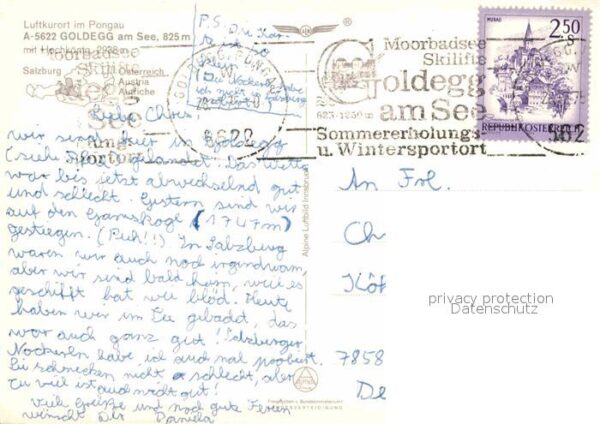 Luftkurort im Pongau
A-5622 GOLDEGG am See, 825 m
mit Hochkönig, 2938 m
Salzburg
Österreich
Austria
Autriche
P.S. Die Kar-
te ist so
Moorbadsee
Skilifte
Goldegg
am See
825-1250 m
Sommererholungs-
u. Wintersportort
5622
MURAU
2.50
S
REPUBLIK ÖSTERREICH
Liebe Chris!
wir sind hier in Goldegg
(siehe gelandet. Das Wetter
war bis jetzt abwechselnd gut
und schlecht. Gestern sind wir
auf den Gamskogl (1747m)
gestiegen. (Puh!!) In Salzburg
waren wir auch noch irgendwann,
aber wir sind bald heim, weil es
geschifft hat wie blöd. Heute
haben wir im See gebadet, das
war auch ganz gut! Salzburger
Nockerln habe ich auch mal probiert.
Sie schmecken nicht schlecht, aber
zu viel ist auch nicht gut!
Viele Grüße und noch gute Ferien
wünscht Dir Daniela
Alpine Luftbild Innsbruck
An Frl.
Ch
Köt
7858
De
privacy protection
Datenschutz